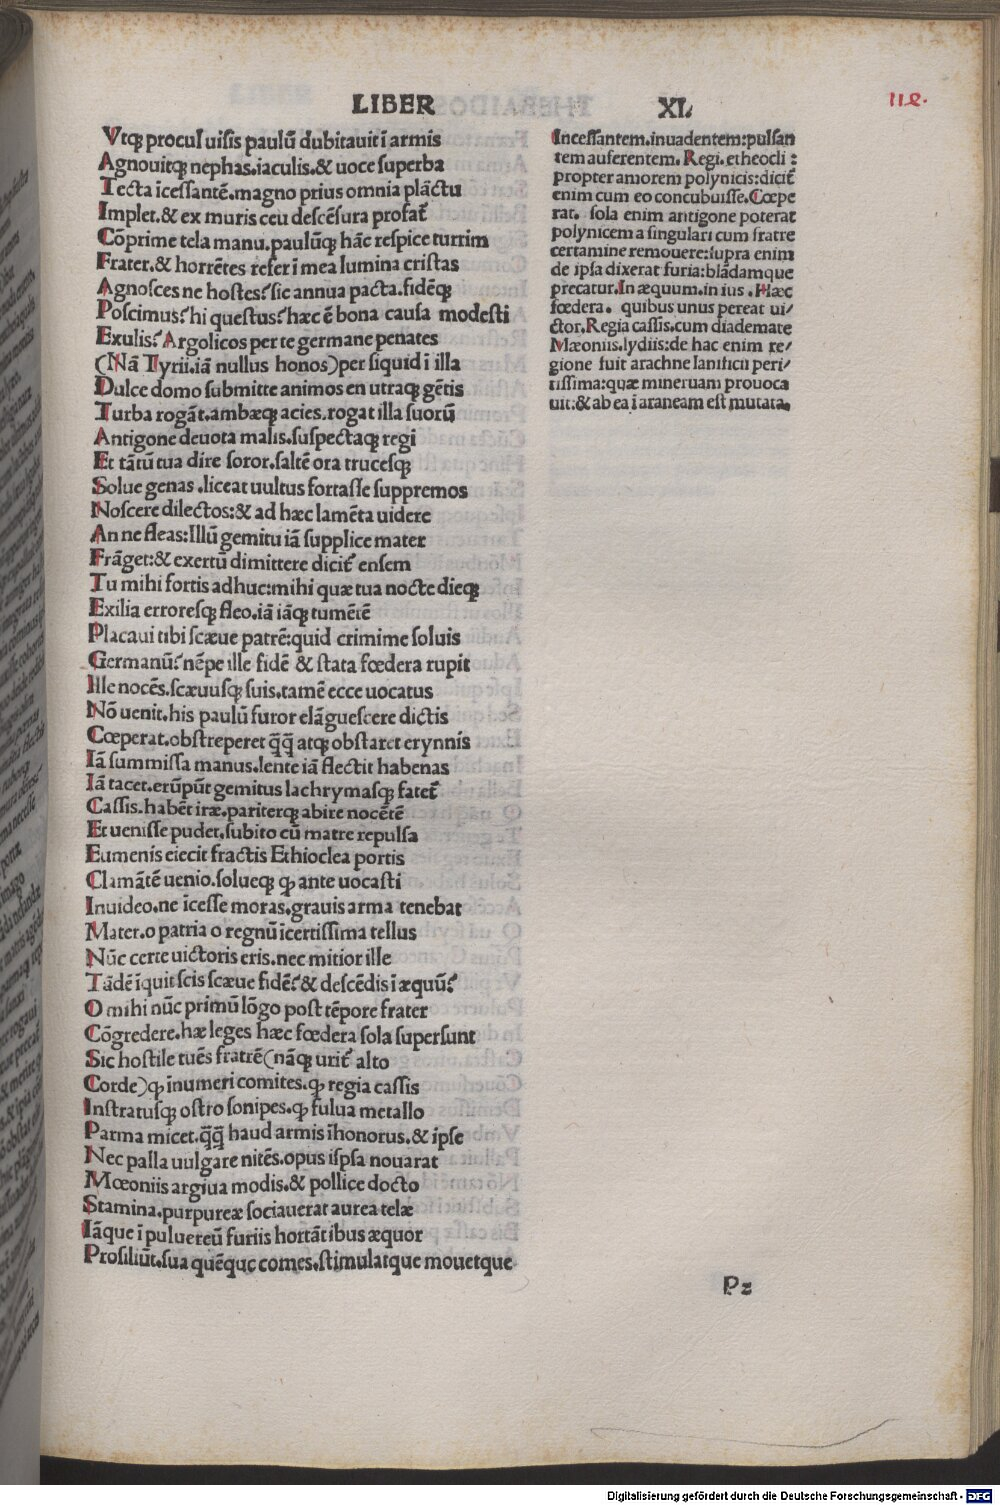 LIBER XI.
112.
Vtqꝫ procul uisis paulū dubitauit ī armis
Agnouitqꝫ nephas.iaculis.& uoce superba
Tecta icessantē.magno prius omnia plāctu
Implet.& ex muris ceu descēsura profat᷑
Cōprime tela manu.paulūqꝫ hāc respice turrim
Frater.& horrētes refer ī mea lumina cristas
Agnosces ne hostes?sic annua pacta.fidēqꝫ
Poscimus?hi questus?hæc ē bona causa modesti
Exulis?Argolicos per te germane penates
(Nā Tyrii.iā nullus honos)per siquid ī illa
Dulce domo submitte animos en utraqꝫ gētis
Turba rogāt.ambæqꝫ acies.rogat illa suorū
Antigone deuota malis.suspectaqꝫ regi
Et tātū tua dire soror.saltē ora trucesqꝫ
Solue genas .liceat uultus fortasse suppremos
Noscere dilectos:& ad hæc lamēta uidere
An ne fleas:Illū gemitu iā supplice mater
Frāget:& exertū dimittere dicit᷑ ensem
Tu mihi fortis adhuc:mihi quæ tua nocte dieqꝫ
Exilia erroresqꝫ fleo.iā iāqꝫ tumētē
Placaui tibi scæue patrē:quid crimime soluis
Germanū?nēpe ille fidē & stata fœdera rupit
Ille nocēs.scæuusqꝫ suis.tamē ecce uocatus
Nō uenit.his paulū furor elāguescere dictis
Cœperat.obstreperet q̄q̄ atqꝫ obstaret erynnis
Iā summissa manus.lente iā flectit habenas
Iā tacet.erūpūt gemitus lachrymasqꝫ fatet᷑
Cassis.habēt iræ.pariterqꝫ abire nocētē
Et uenisse pudet.subito cū matre repulsa
Eumenis eiecit fractis Ethioclea portis
Clamātē uenio.solueqꝫ ꝙ ante uocasti
Inuideo.ne īcesse moras.grauis arma tenebat
Mater.o patria o regnū icertissima tellus
Nūc certe uictoris eris.nec mitior ille
Tādē īquit scis scæue fidē?& descēdis ī æquū?
O mihi nūc primū lōgo post tēpore frater
Cōgredere.hæ leges hæc fœdera sola supersunt
Sic hostile tuēs fratrē(nāqꝫ urit᷑ alto
Corde)ꝙ īnumeri comites.ꝙ regia cassis
Instratusqꝫ ostro sonipes.ꝙ fulua metallo
Parma micet.q̄q̄ haud armis īhonorus.& ipse
Nec palla uulgare nitēs.opus ispsa nouarat
Mœoniis argiua modis.& pollice docto
Stamina.purpureæ sociauerat aurea telæ
Iāque ī puluereū furiis hortātibus æquor
Prosiliūt.sua quēque comes.stimulatque mouetque
Incessantem.inuadentem:pulsan
tem auferentem. Regi. etheocli :
propter amorem polynicis:dicit᷑
enim cum eo concubuisse.Cœpe
rat. sola enim antigone poterat
polynicem a singulari cum fratre
certamine remouere:supra enim
de ipsa dixerat furia:blādamque
precatur.In æquum.in ius .Hæc
fœdera. quibus unus pereat ui/
ctor.Regia cassis.cum diademate
Mæoniis.lydiis:de hac enim re/
gione fuit arachne lanificii peri/
tissima:quæ mineruam prouoca
uit:& ab ea ī araneam est mutata.
P2
Digitalisierung gefördert durch die Deutsche Forschungsgemeinschaft - DFG